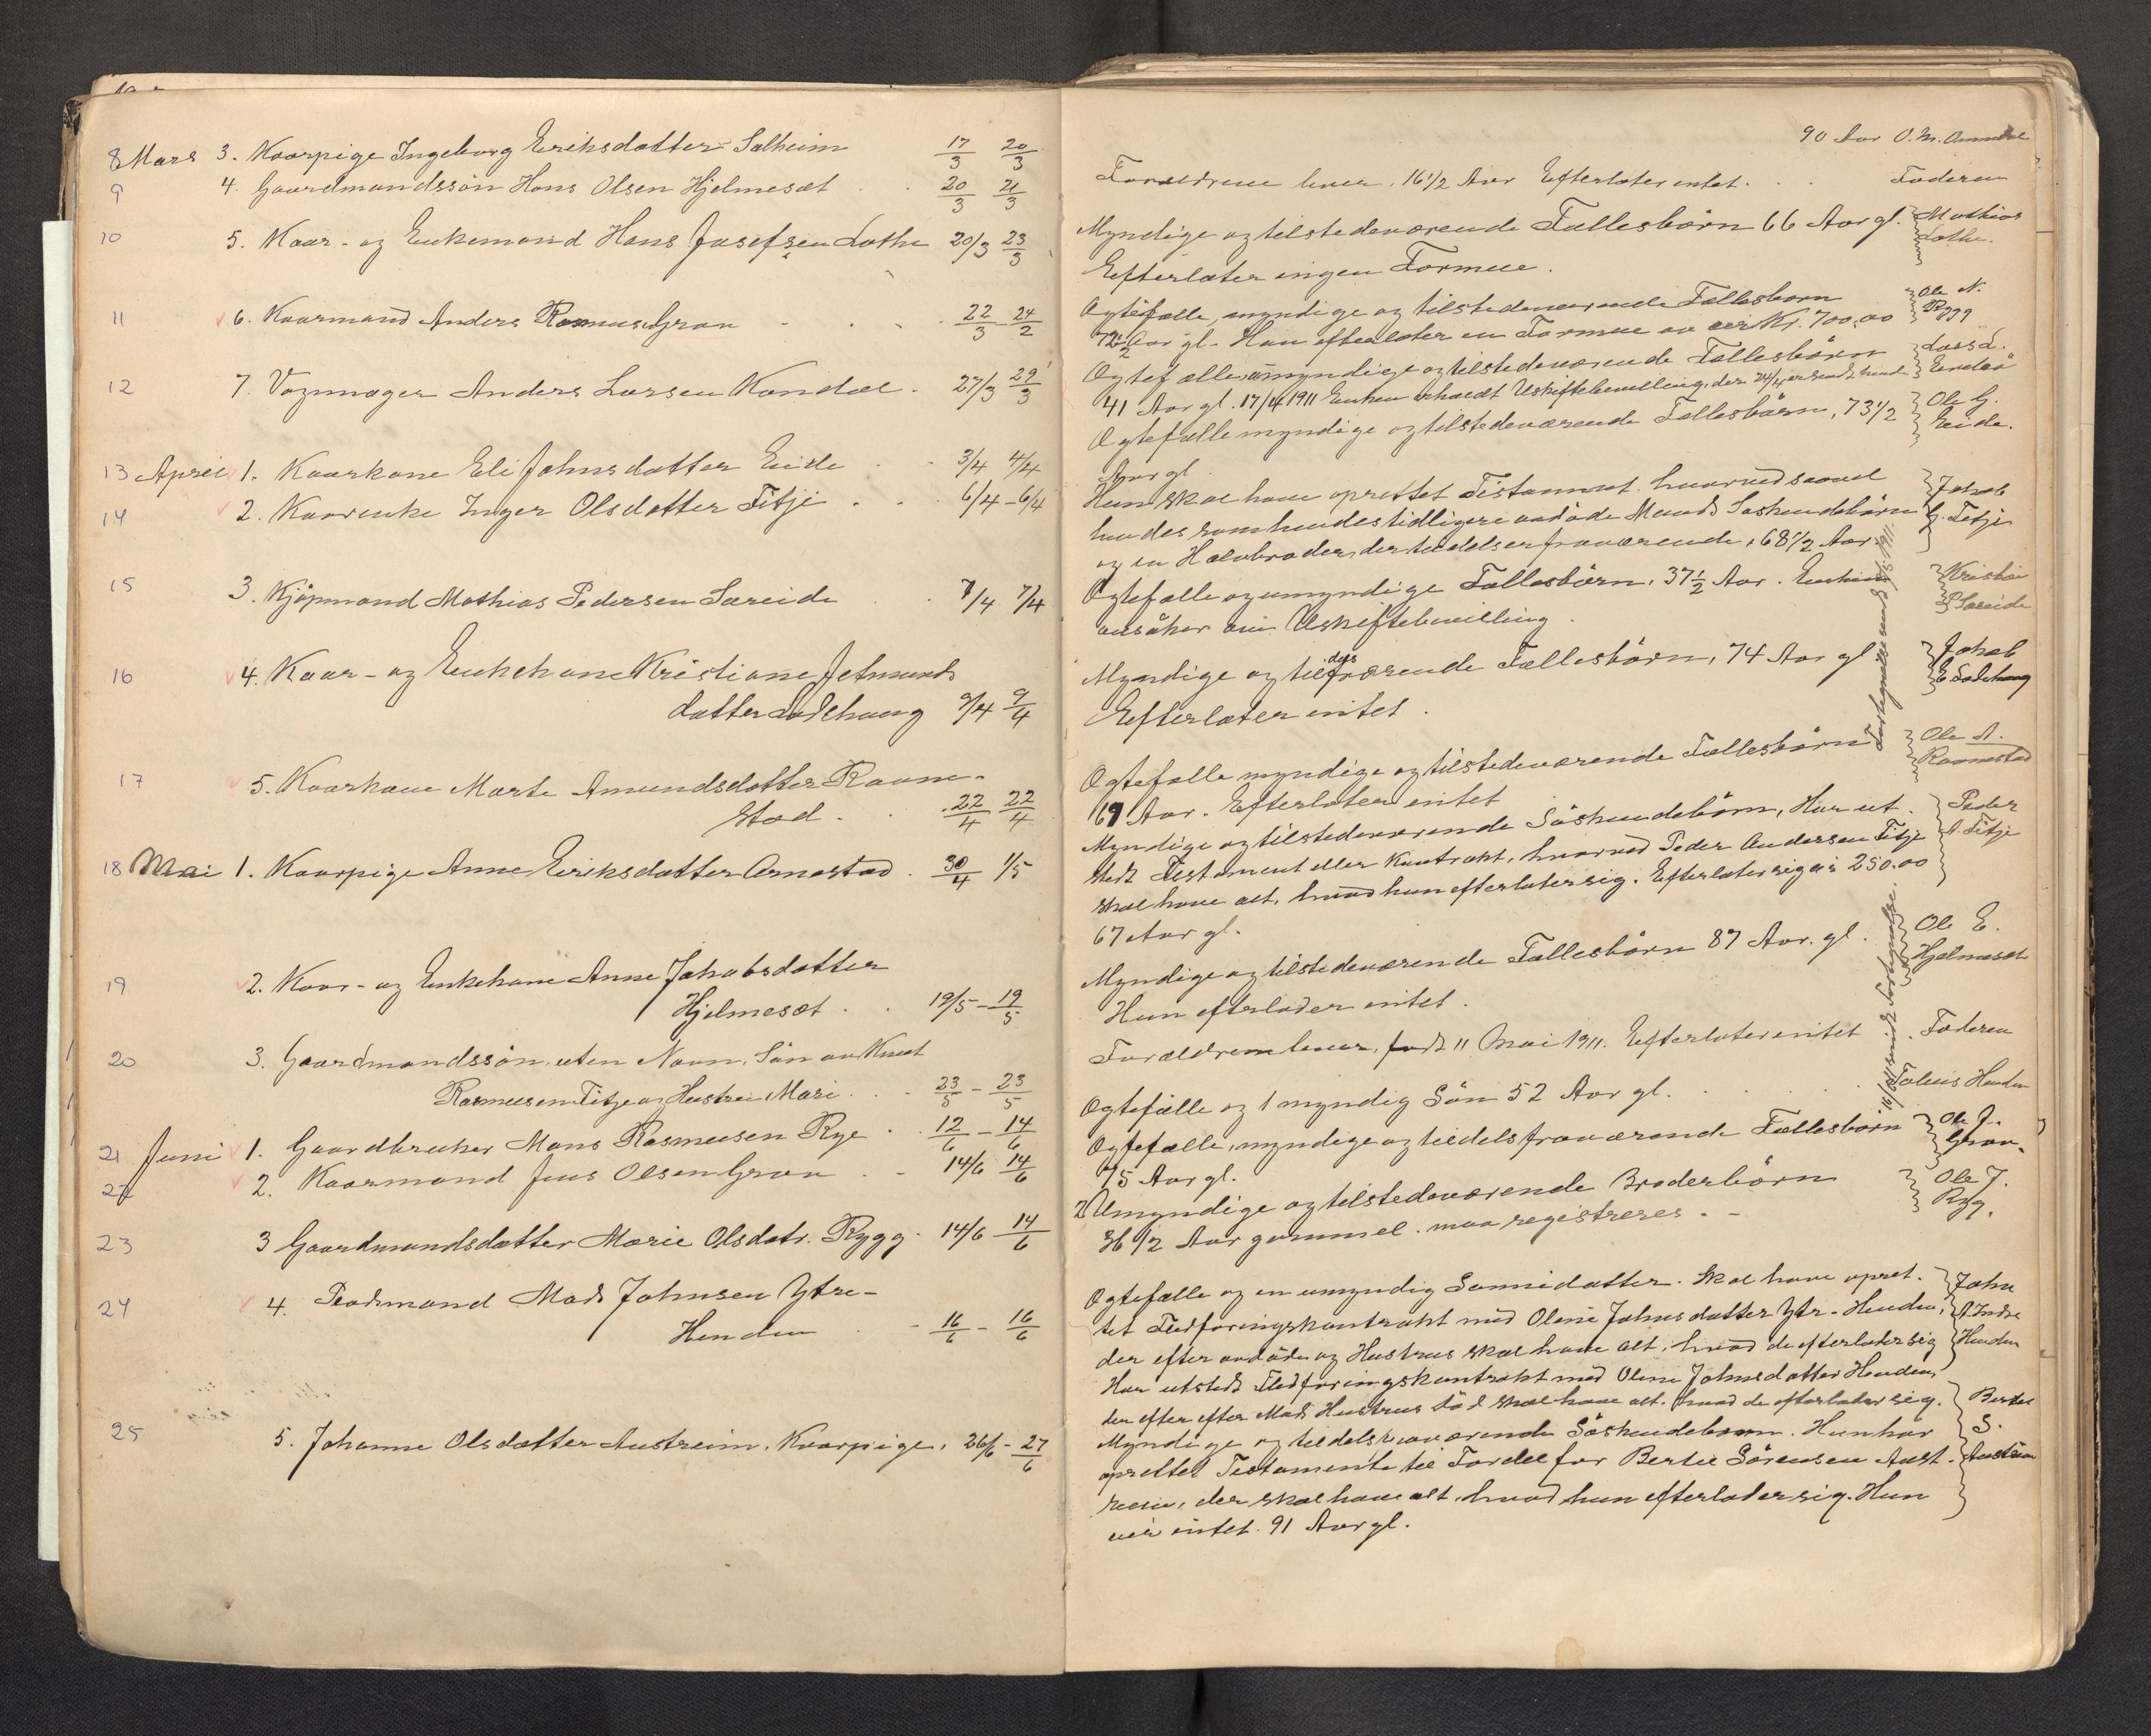 8 Mars 3. Kaarpige Ingeborg Eriksdatter Solheim 17/3 20/3
9 4. Gaardmandssön Hans Olsen Hjelmesæt . . 20/3 21/3
10 5. Kaar- og Enkemand Hans Josefsen Lothe 20/3 23/3
11 6. Kaarmand Anders Rasmusen Grov 22/3 24/2
12 7. Vognmager Anders Larsen Kandal . 27/3 29/3
13 April 1. Kaarkone Eli Johnsdatter Eide 3/4 4/4
14 2. Kaarenke Inger Olsdatter Fitje . . 6/4 - 6/4
15 3. Kjöpmand Mathias Pedersen Særeide 7/4 7/4
16 4. Kaar- og Enkekone Kristiane Jetmunds
datter Ladehaug 9/4 9/4
17 5. Kaarkone Marte Amundsdatter Ravne-
stad . 22/4 22/4
18 Mai 1. Kaarpige Anne Eriksdatter Arnestad . 30/4 1/5
19 2. Kaar- og Enkekone Anne Jakobsdatter
Hjelmesæt . . 19/5 - 19/5
20 3. Gaardmandssön uten Navn, Sön av Knut
Rasmusen Fitje og Hustru Mari . . 23/5 - 23/5
21 Juni 1. Gaardbruker Mons Rasmusen Rye . 12/6 - 14/6
22 2. Kaarmand Jens Olsen Grov 14/6 14/6
23 3 Gaardmandsdatter Marie Olsdatr. Rygg . 14/6 14/6
24 4. Pladsmand Mads Johnsen Ytre-
Henden - 16/6 - 16/6
25 5. Johanne Olsdatter Austreim, Kaarpige, 26/6 - 27/6
90 Aar O. M.
Forældrene lever, 16 1/2 Aar Efterlater intet. . . Faderen
Myndige og tilstedeværende Fællesbörn 66 Aar gl. Mathias
Lothe.
Efterlater ingen Formue.
Ægtefælle, myndige og tilstedeværende Fællesbörn Ole N.
72 1/2 Aar gl. Han efterlater en Formue av Kr. 700,00 Rygg
Ægtefælle, umyndige og tilstedeværende Fællesbörn
41 Aar gl. 17/4 1911 Enken erholdt Uskiftebevilling, der 24/4 er sendt hende
Ægtefælle myndige og tilstedeværende Fællesbörn, 73 1/2 Ole G.
Eide.
Aar gl.
Hun skal have oprettet Testament, hvorved saavel Jakob
hendes som hendes tidligere avdöde Mands Söskendebörn G. Fitje
og en Halvbroder, der tildels er fraværende, 68 1/2 Aar.
Ægtefælle og umyndige Fællesbörn, 37 1/2 Aar. Enken Kristine
Særeide
ansöker om Uskiftebevilling.
Myndige og tildels fraværende Fællesbörn, 74 Aar gl Jakob
E. Ladehaug
Efterlater intet.
Ægtefælle myndige og tilstedeværende Fællesbörn Ole A.
Ravnestad
69 Aar. Efterlater intet
Myndige og tilstedeværende Söskendebörn, Har ut- Peder
stedt Testament eller Kontrakt, hvorved Peder Andersen Fitje A. Fitje
skal have alt, hvad hun efterlater sig. Efterlater sig 250.00
67 Aar gl.
Myndige og tilstedeværende Fællesbörn 87 Aar gl. Ole E.
Hjelmesæt
Hun efterlader intet.
Forældrene lever, födt 11 Mai 1911. Efterlater intet . Faderen
Ægtefælle og 1 myndig Sön 52 Aar gl. . . .
Ægtefælle, myndige og tildels fraværende Fællesbörn Ole J.
Grov.
75 Aar gl.
2 Umyndige og tilstedeværende Broderbörn Ole J.
Rygg.
36 1/2 Aar gammel. maa registreres . -
Ægtefælle og en umyndig Sønnedatter. Skal have opret- John
tet Fledföringskontrakt med Oline Johnsdatter Ytr-Henden, A. Indre
der efter avdöde og Hustrus skal have alt, hvad de efterlater sig Henden
Har utstedt Fledföringskontrakt med Oline Johnsdatter Henden,
der efter efter Mads Hustrus död skal have alt, hvad de efterlader sig.
Myndige og tildels fraværende Söskendebörn. Hun har Bertel
S.
oprettet Testamente til Fordel for Bertel Sörensen Aust- Austreim
reim, der skal have alt, hvad hun efterlader sig. Hun
eier intet. 91 Aar gl.